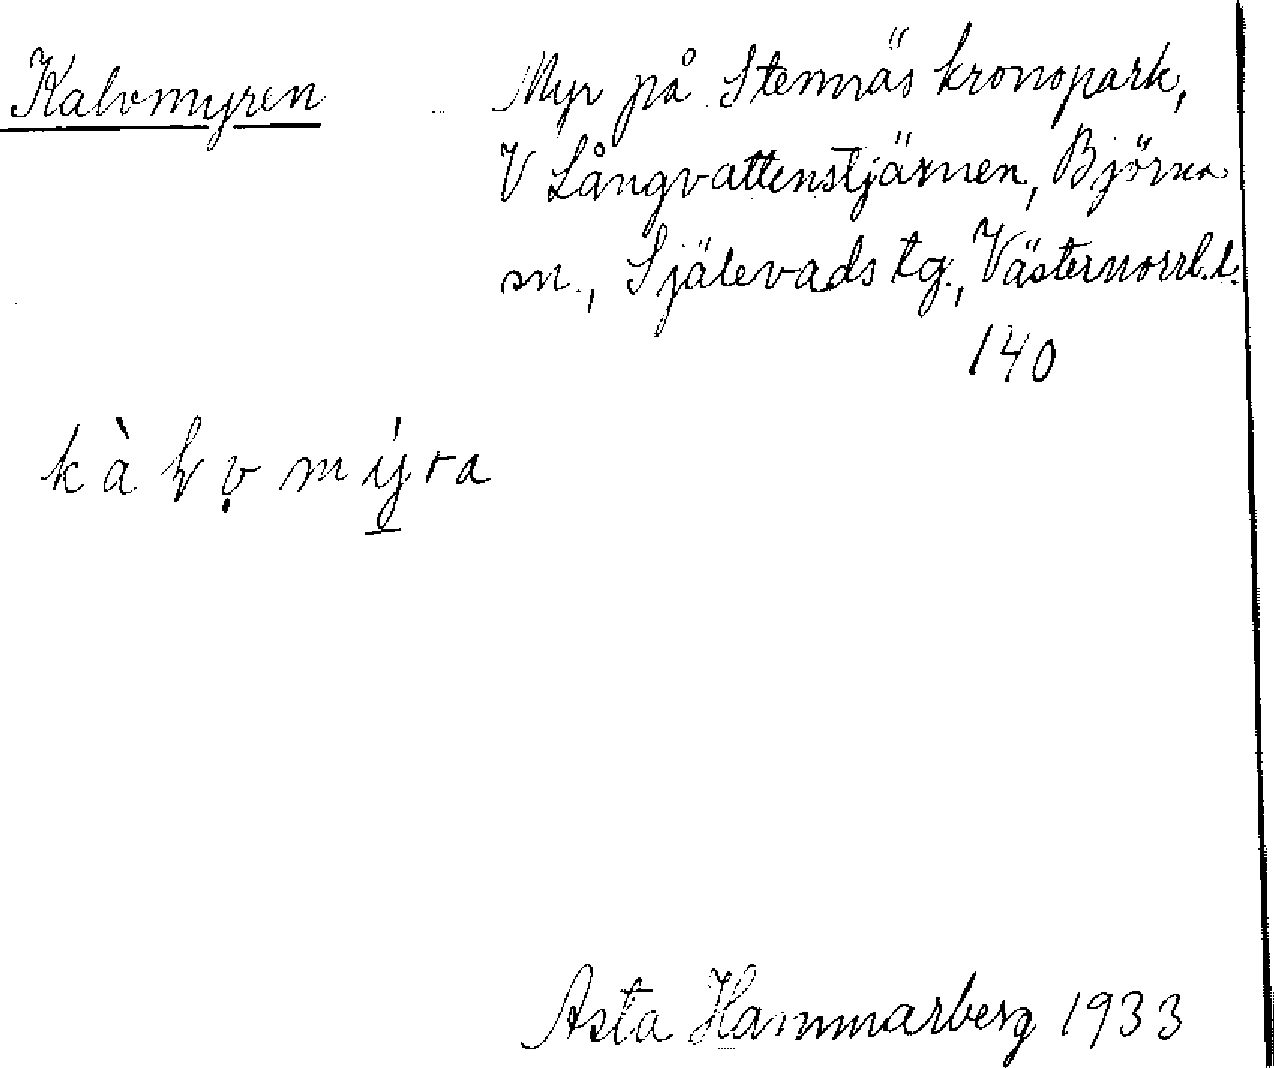 Kalvmyren
Myr på Stennäs kronopark,
V Långvattenstjärnen, Björna
sn., Själevads tg., Västernorrl.l.
140
kàlv̥mýra
Asta Hammarberg 1933